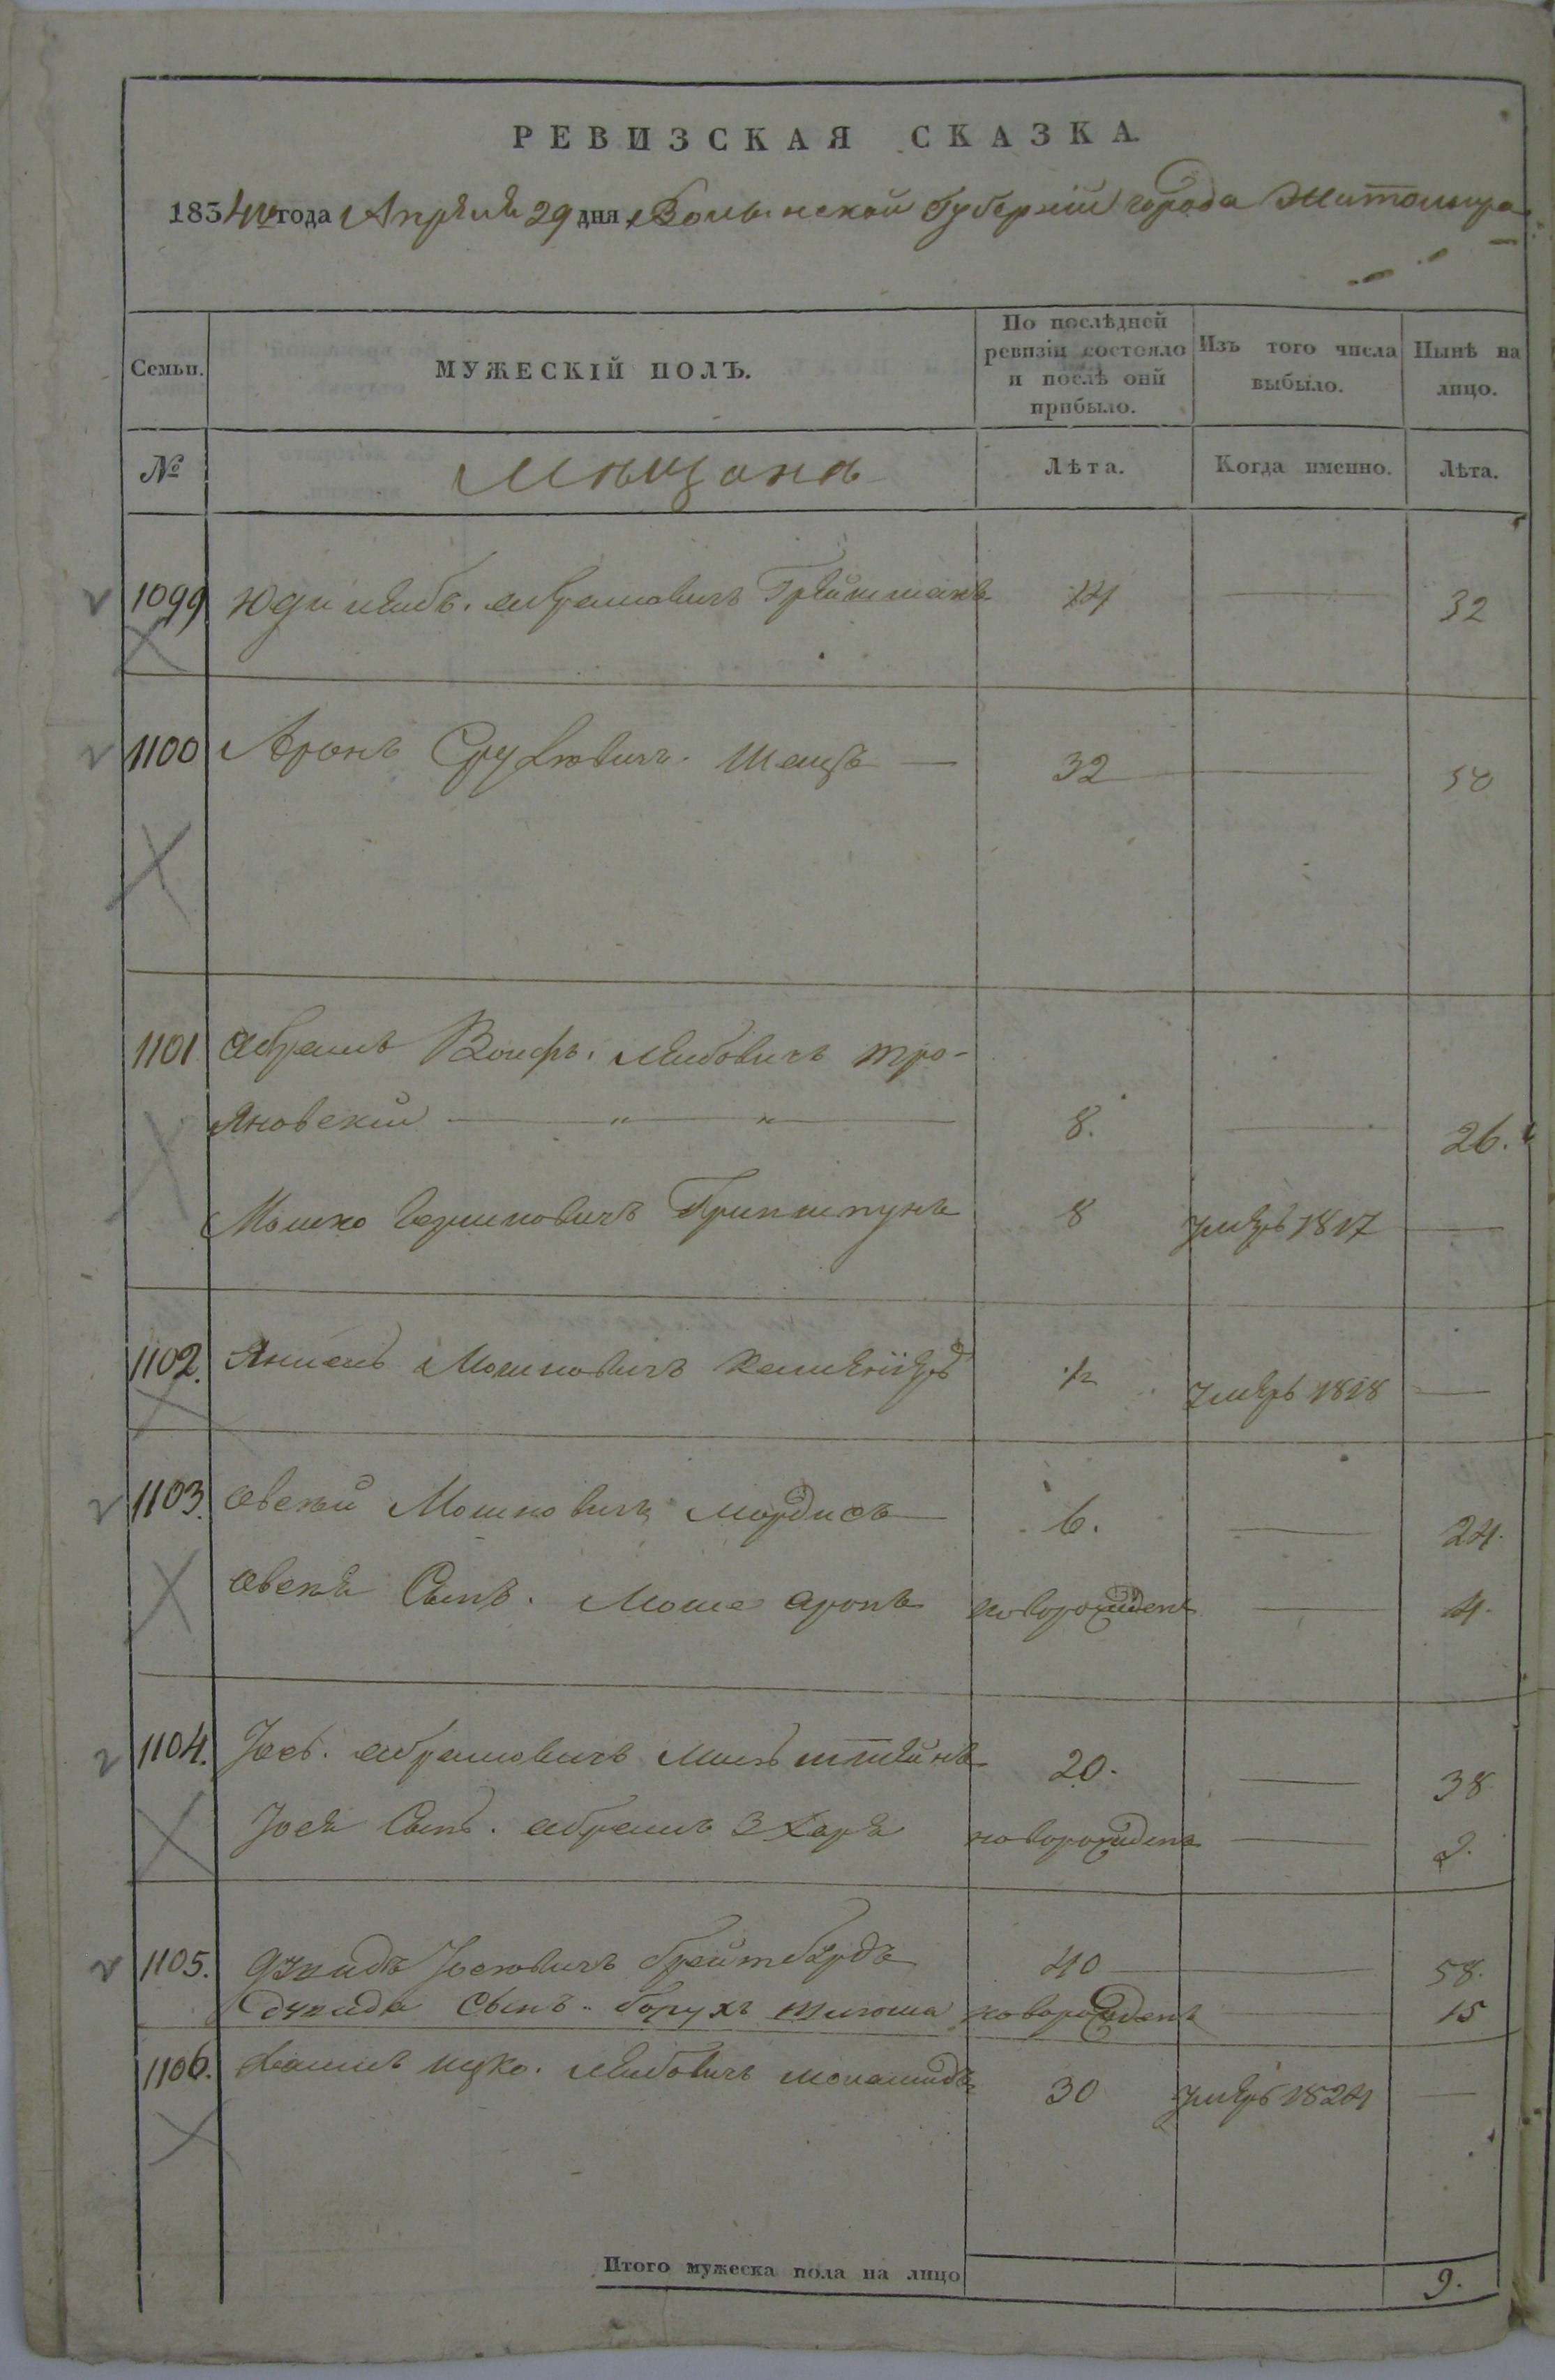 РЕВИЗСКАЯ СКАЗКА.
1834го года Апреля 29 дня Волынской Губерніи города Житомира
Семьи. МУЖЕСКІЙ ПОЛЪ. По послѣдней ревизіи состояло и послѣ оной прибыло. Изъ того числа выбыло. Нынѣ на лицо.
№ Мѣщане Лѣта. Когда именно. Лѣта.
1099 Юди Лейб. Абрамовичъ 14 — 32
1100 Аронъ Срулiовичъ — 32 — 50
1101 Абрамъ Волфъ. Лейбовичъ Тро-
яновскiй — " — " — 8. — 26.
Мошко 8 умеръ 1817 —
1102. Мошковичъ ½ умеръ 1818 —
1103. Овсѣй Мошковичъ Мордисъ — 6. — 24.
Овсея Сынъ. Моше Аронъ новорожденъ — 4.
1104. Iосъ. Абрамовичъ 20. — 38
Iося Сынъ. Абрамъ новорожденъ — 2.
1105. Iосiовичъ 40 — 58.
Сынъ. Борухъ новорожденъ — 15
1106. Ицко. Лейбовичъ 30 умеръ 1824 —
Итого мужеска пола на лицо 9.